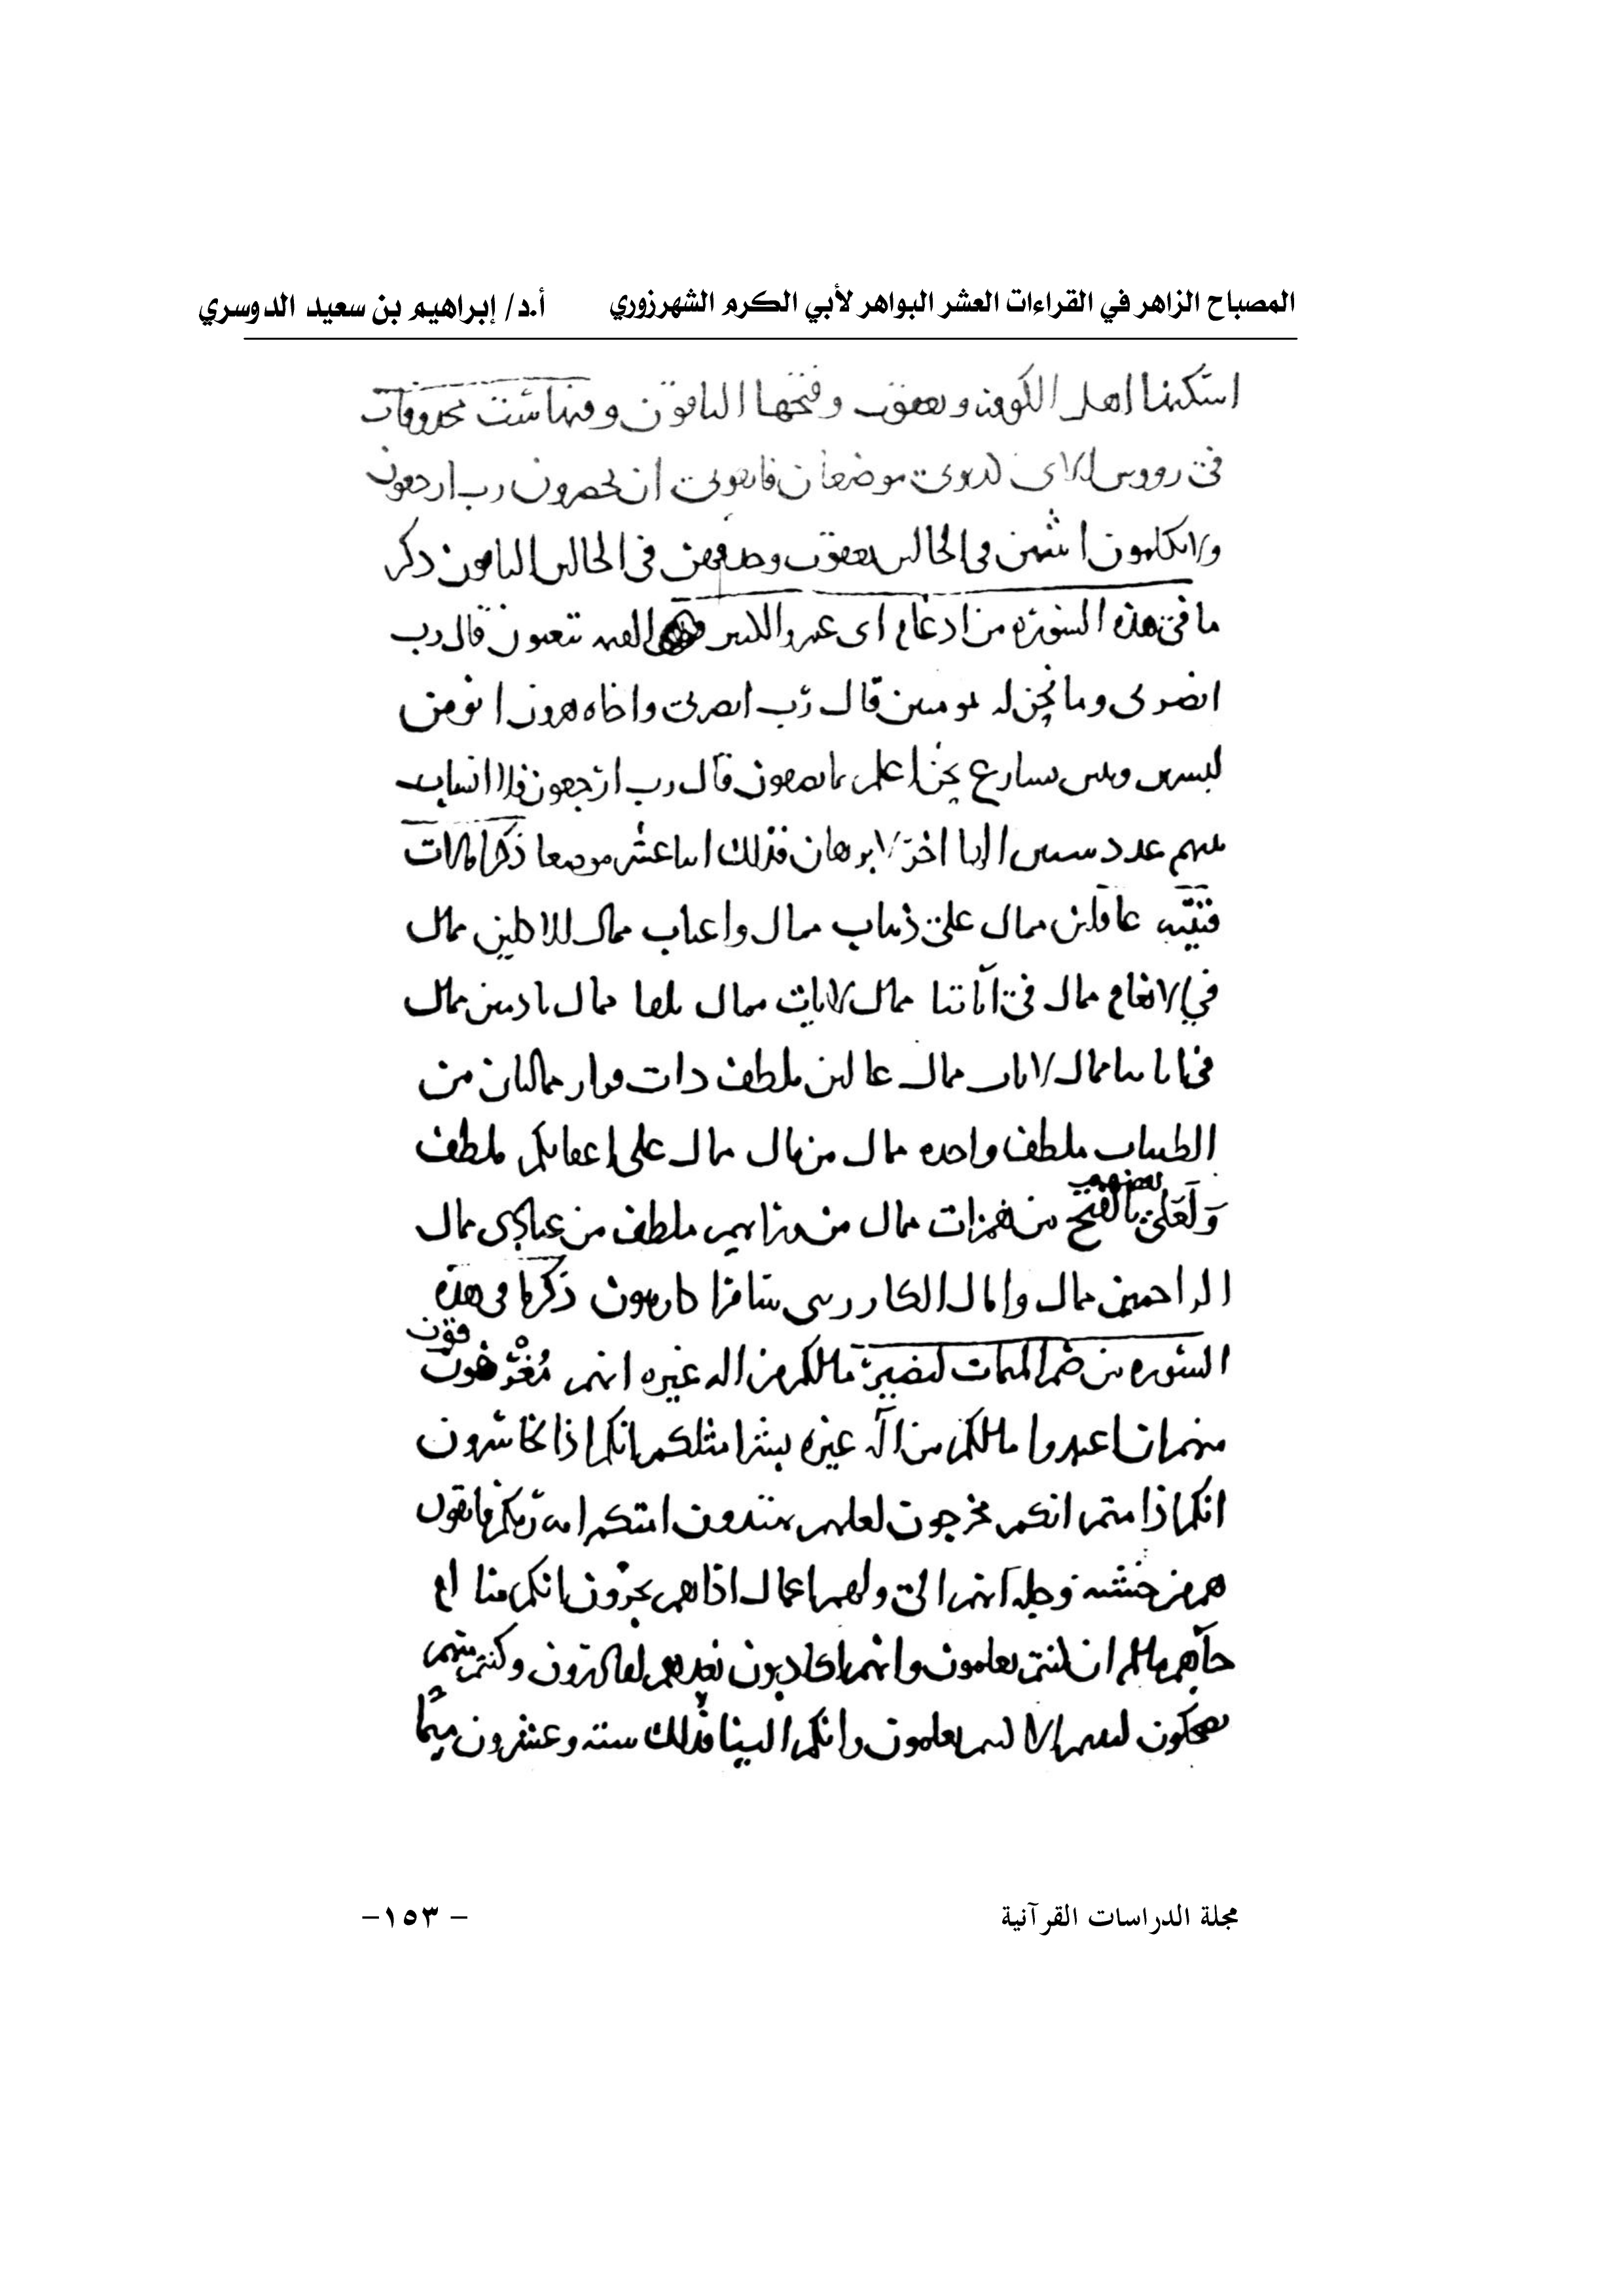 المصباح الزاهر في القراءات العشر البواهر لأبي الكرم الشهرزوري أ.د/ إبراهيم بن سعيد الدوسري
اسكنها اهل الكوفة ويعقوب وفتحها الباقون وفيها ست محذوفات
في رووس الاى كذبون موضعان فاتقون ان يحضرون رب ارجعون
ولا تكلمون اثبتهن في الحالين يعقوب وحذفهن في الحالين الباقون ذكر
ما في هذه السورة من ادغام ابي عمرو الكبير القيمة تبعثون قال رب
انصرني وما نحن له بمومنين قال رب انصرني واخاه هرون انومن
لبشرين وبنين نسارع نحن اعلم بما يصفون قال رب ارجعون فلا انساب
بينهم عدد سنين الها اخر لا برهان فذلك اثنا عشر موضعا ذكر امالات
قتيبة غافلين ممال على ذهاب ممال واعناب ممال للاكلين ممال
في الانعام ممال في آبائنا ممال لايات ممال بلقا ممال نادمين ممال
في اباينا ممال لايات ممال عالين ملطف ذات قرار ممالتان من
الطيبات ملطف واحده ممال من مال ممال على اعقابكم ملطف
ولعلى بالفتح من همزات ممال من ورايهم ملطف من عبادى ممال
الراحمين ممال وامال الكار رسى كارهون ذكر ما في هذه
السورة من ضم الميمات لنصير ما لكم من اله غيره انهم مغرقون
منهم ان اعبدوا ما لكم من اله غيره بشرا مثلكم انكم اذا لخاسرون
انكم اذا متم انكم مخرجون لعلهم يهتدون امتكم امة ربكم فاتقون
هم من خشية وجلة انهم الى ولهم اعمال اذا هم يجرون انكم منا ام
جآهم ما لم ان كنتم تعلمون وانهم لكاذبون نعدهم لقادرون وكنتم منهم
تضحكون لبثتم الا كنتم تعلمون وانكم الينا فذلك ستة وعشرون ميما
مجلة الدراسات القرآنية - ١٥٣-